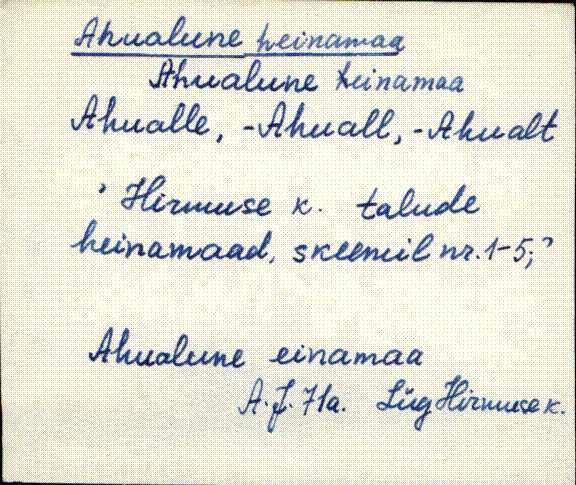 Ahualune heinamaa
Ahualune heinamaa
Ahualle, -Ahuall, -Ahualt
' Hirmuse k. talude
heinamaad, skeemil nr. 1-5;'
Ahualune einamaa
A.J. 71a. Lüg Hirmuse k.